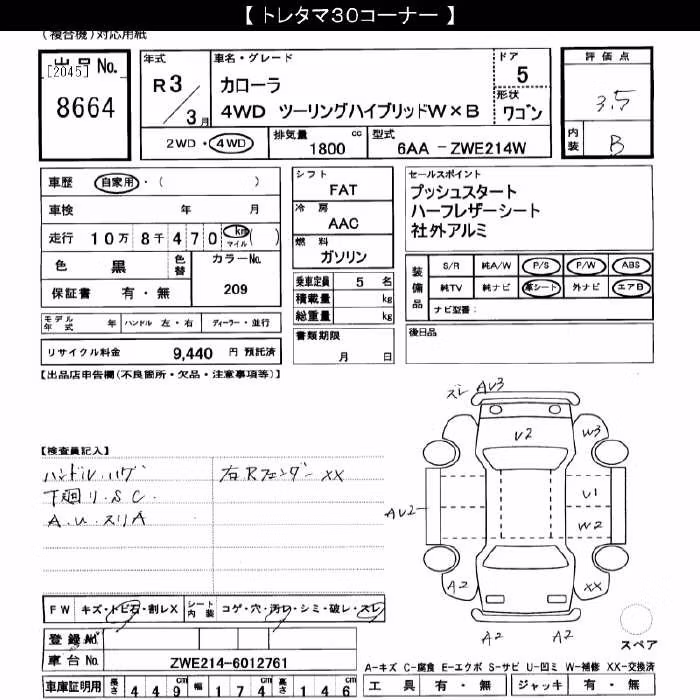 【 トレタマ30コーナー 】
(複合機)対応用紙
出品No.
[2045]
8664
年式
R 3 / 3 月
車名・グレード
カローラ
4WD ツーリングハイブリッドW×B
ドア
5
形状
ワゴン
評価点
3.5
内装
B
2WD・4WD
排気量 1800 cc
型式 6AA - ZWE214W
車歴 自家用・( )
車検 年 月
走行 10万 8千 4 7 0 km マイル ( )
色 黒 色替
カラーNo. 209
保証書 有・無
モデル年式 年 ハンドル 左・右 ディーラー・並行
リサイクル料金 9,440 円 預託済
シフト
FAT
冷房
AAC
燃料
ガソリン
乗車定員 5 名
積載量 kg
総重量 kg
書類期限
月 日
セールスポイント
プッシュスタート
ハーフレザーシート
社外アルミ
装備品
S/R 純A/W P/S P/W ABS
純TV 純ナビ 革シート 外ナビ エアB
ナビ型番:
後日品
【出品店申告欄(不良箇所・欠品・注意事項等)】
【検査員記入】
ハンドル.ハゲ
下廻リ.SC.
A.U.スリA
右Rフェンダー XX
スレ AV3
V2
W3
U1
W2
AV2
A2
XX
A2
A2
スペア
FW キズ・トビ石・割レX
シート内装 コゲ・穴・汚レ・シミ・破レ・スレ
登録No.
車台No. ZWE214-6012761
A-キズ C-腐食 E-エクボ S-サビ U-凹ミ W-補修 XX-交換済
車庫証明用 長さ 4 4 9 cm 幅 1 7 4 cm 高さ 1 4 6 cm
工具 有・無 ジャッキ 有・無